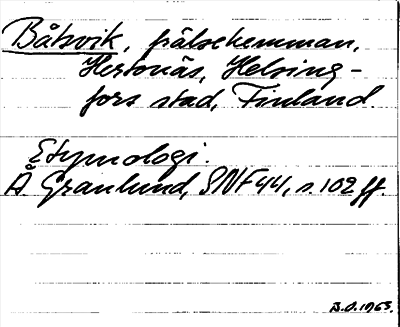 Båtsvik, frälsehemman,
Hertonäs, Helsing-
fors stad, Finland.
Etymologi.
Å Granlund, SNF 44, s. 102 ff.
B.O. 1963.